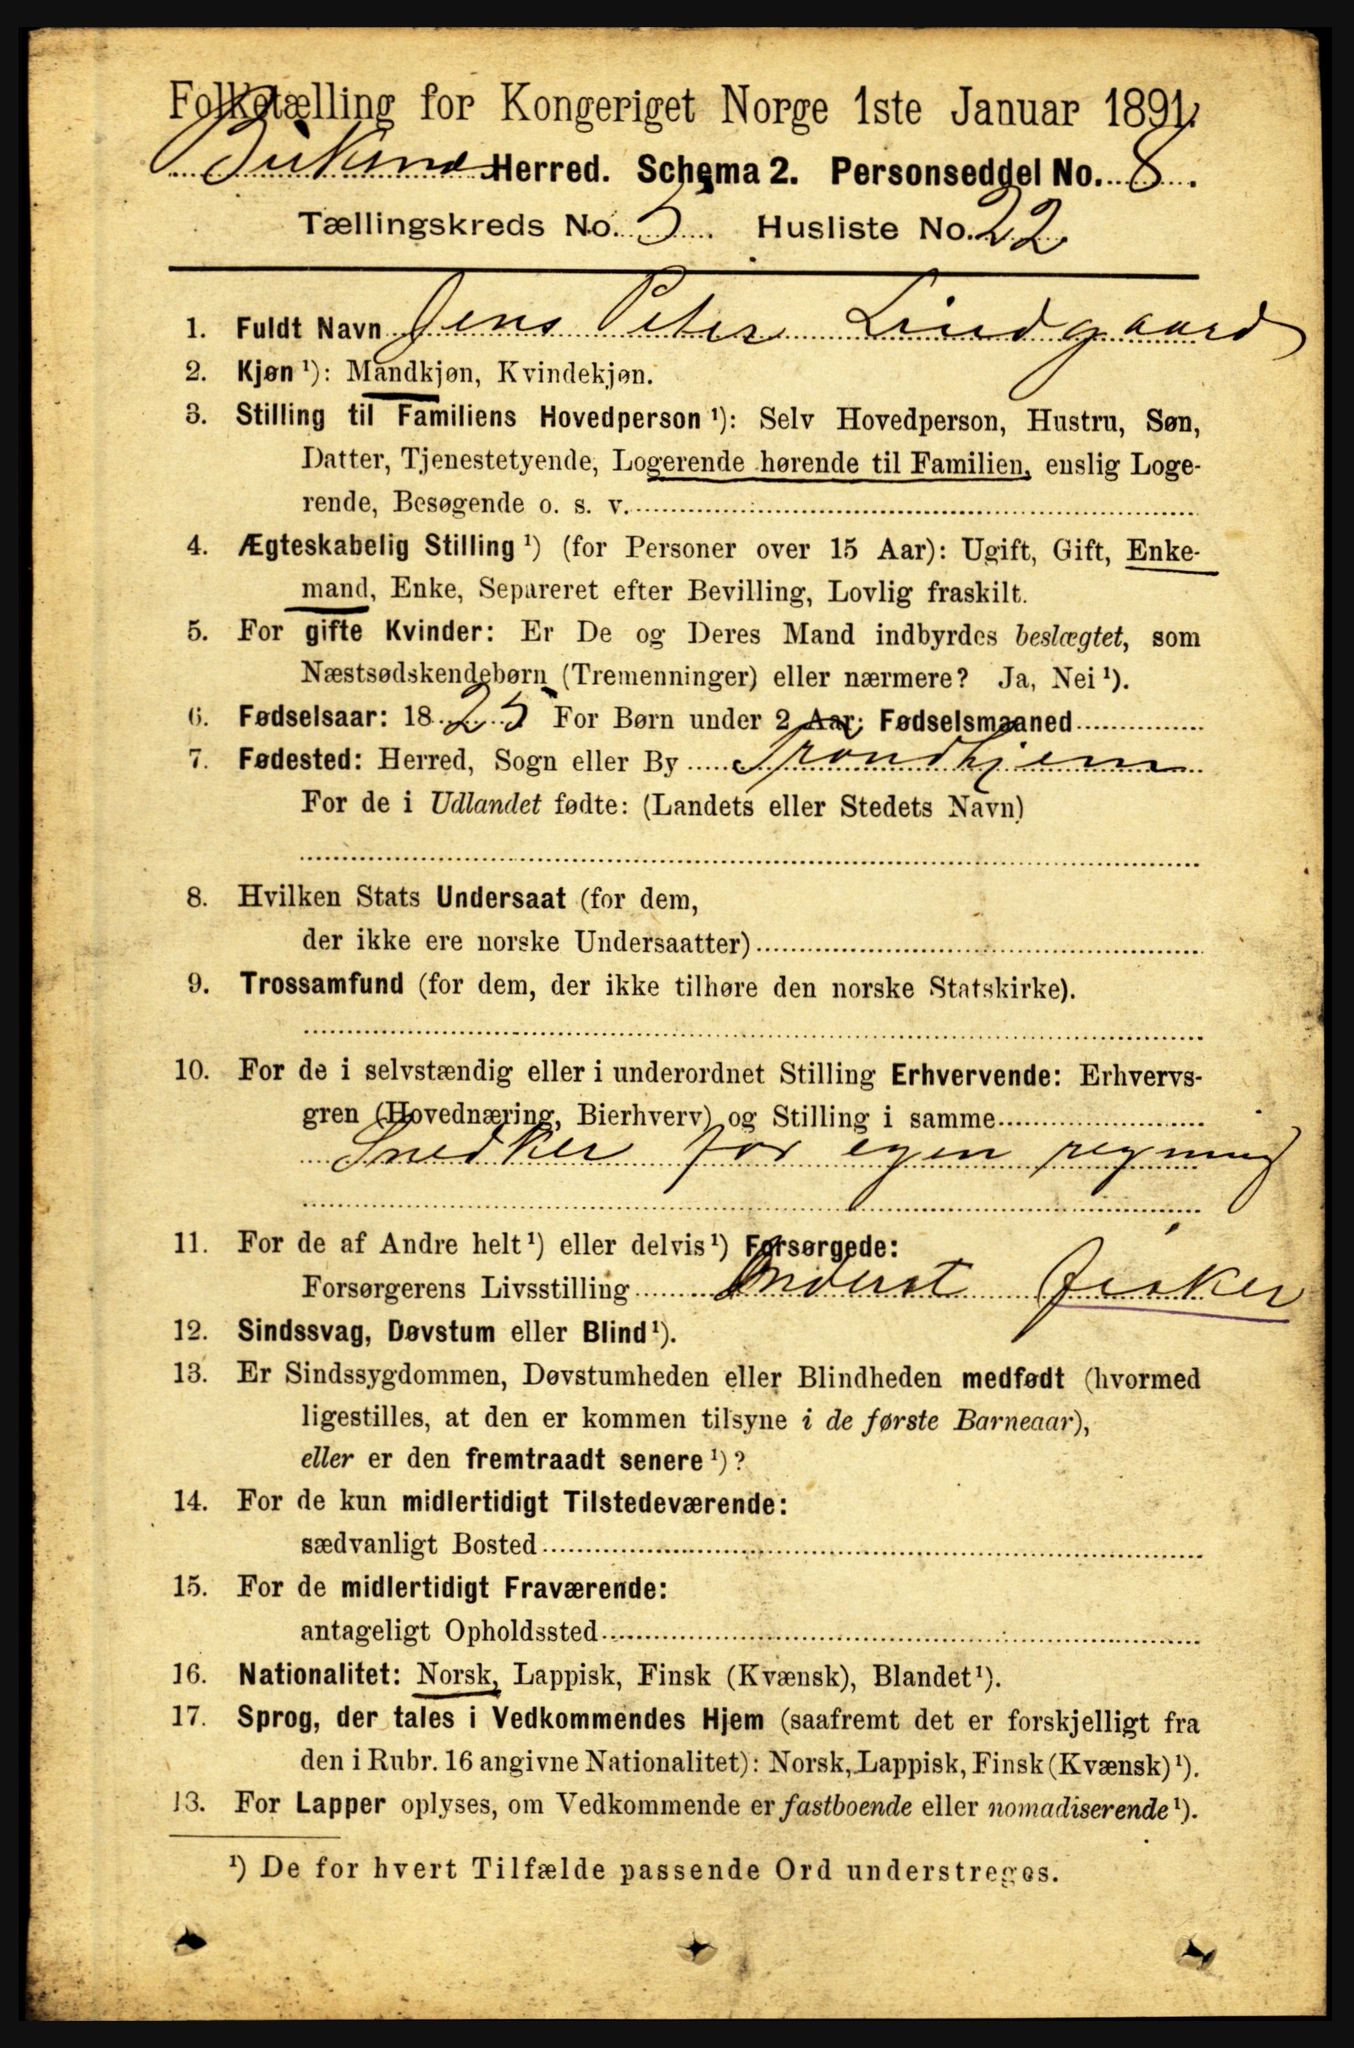 Folketælling for Kongeriget Norge 1ste Januar 1891.
Herred. Schema 2. Personseddel No. 8.
Tællingskreds No. 5. Husliste No. 22
1. Fuldt Navn Jens Peter Lindgaard
2. Kjøn ¹): Mandkjøn, Kvindekjøn.
3. Stilling til Familiens Hovedperson ¹): Selv Hovedperson, Hustru, Søn,
Datter, Tjenestetyende, Logerende hørende til Familien, enslig Loge-
rende, Besøgende o. s. v.
4. Ægteskabelig Stilling ¹) (for Personer over 15 Aar): Ugift, Gift, Enke-
mand, Enke, Separeret efter Bevilling, Lovlig fraskilt.
5. For gifte Kvinder: Er De og Deres Mand indbyrdes beslægtet, som
Næstsødskendebørn (Tremenninger) eller nærmere? Ja, Nei ¹).
6. Fødselsaar: 1825 For Børn under 2 Aar: Fødselsmaaned
7. Fødested: Herred, Sogn eller By Trondhjem
For de i Udlandet fødte: (Landets eller Stedets Navn)
8. Hvilken Stats Undersaat (for dem,
der ikke ere norske Undersaatter)
9. Trossamfund (for dem, der ikke tilhøre den norske Statskirke).
10. For de i selvstændig eller i underordnet Stilling Erhvervende: Erhvervs-
gren (Hovednæring, Bierhverv) og Stilling i samme
Snedker for egen regning
11. For de af Andre helt ¹) eller delvis ¹) Forsørgede:
Forsørgerens Livsstilling Inderst fisker
12. Sindssvag, Døvstum eller Blind ¹).
13. Er Sindssygdommen, Døvstumheden eller Blindheden medfødt (hvormed
ligestilles, at den er kommen tilsyne i de første Barneaar),
eller er den fremtraadt senere ¹)?
14. For de kun midlertidigt Tilstedeværende:
sædvanligt Bosted
15. For de midlertidigt Fraværende:
antageligt Opholdssted
16. Nationalitet: Norsk, Lappisk, Finsk (Kvænsk), Blandet ¹).
17. Sprog, der tales i Vedkommendes Hjem (saafremt det er forskjelligt fra
den i Rubr. 16 angivne Nationalitet): Norsk, Lappisk, Finsk (Kvænsk) ¹).
13. For Lapper oplyses, om Vedkommende er fastboende eller nomadiserende ¹).
¹) De for hvert Tilfælde passende Ord understreges.